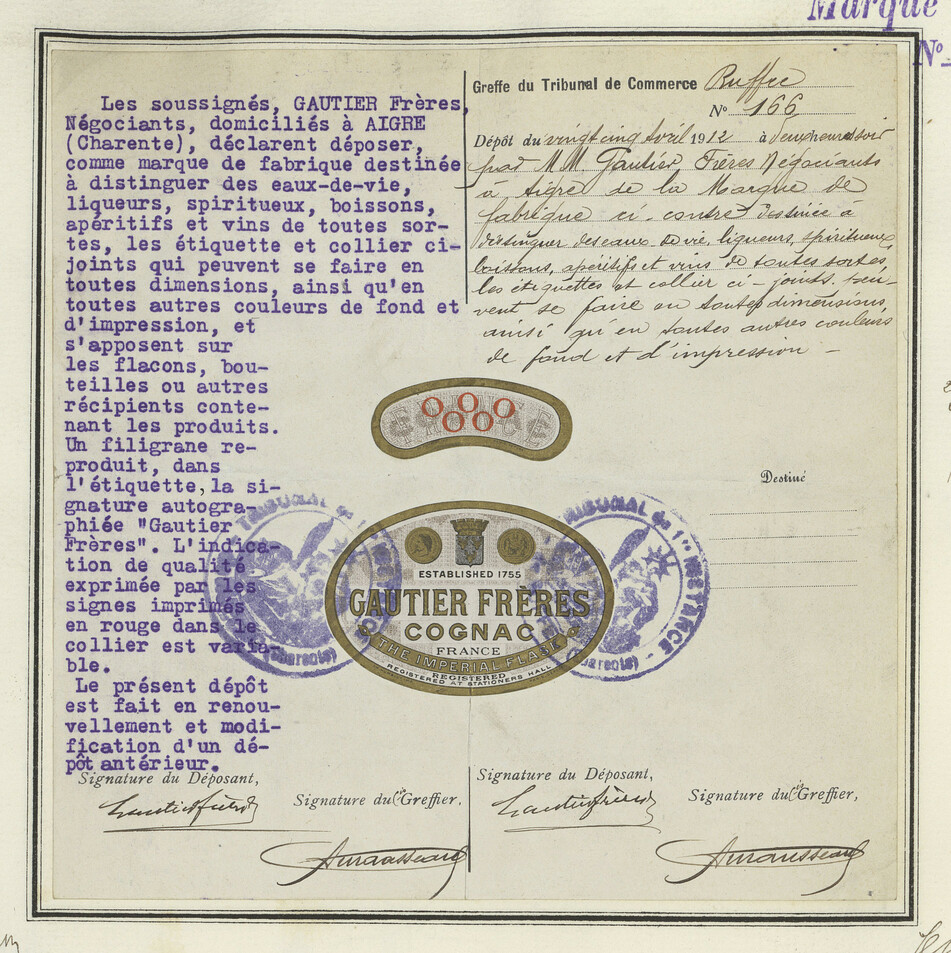 Marque
No
Les soussignés, GAUTIER Frères,
Négociants, domiciliés à AIGRE
(Charente), déclarent déposer,
comme marque de fabrique destinée
à distinguer des eaux-de-vie,
liqueurs, spiritueux, boissons,
apéritifs et vins de toutes sor-
tes, les étiquette et collier ci-
joints qui peuvent se faire en
toutes dimensions, ainsi qu'en
toutes autres couleurs de fond et
d'impression, et
s'apposent sur
les flacons, bou-
teilles ou autres
récipients conte-
nant les produits.
Un filigrane re-
produit, dans
l'étiquette, la si-
gnature autogra-
phiée "Gautier
Frères". L'indica-
tion de qualité
exprimée par les
signes imprimés
en rouge dans le
collier est varia-
ble.
Le présent dépôt
est fait en renou-
vellement et modi-
fication d'un dé-
pôt antérieur.
Signature du Déposant,
Gautier frères
Signature du Greffier,
Greffe du Tribunal de Commerce Ruffec
No 166
Dépôt du vingt cinq Avril 1912 à deux heures du soir
par M.M. Gautier Frères Négociants
à Aigre de la Marque de
fabrique ci-contre destinée à
distinguer des eaux-de-vie, liqueurs, spiritueux,
boissons, apéritifs et vins de toutes sortes,
les étiquettes et collier ci-joints peu-
vent se faire en toutes dimensions
ainsi qu'en toutes autres couleurs
de fond et d'impression -
FRANCE
OOOOO
Destiné
ESTABLISHED 1755
GAUTIER FRÈRES
COGNAC
FRANCE
THE IMPERIAL FLASK
REGISTERED
REGISTERED AT STATIONERS HALL
TRIBUNAL de
(Charente)
TRIBUNAL de 1re INSTANCE
(Charente)
Signature du Déposant,
Gautier frères
Signature du Greffier,